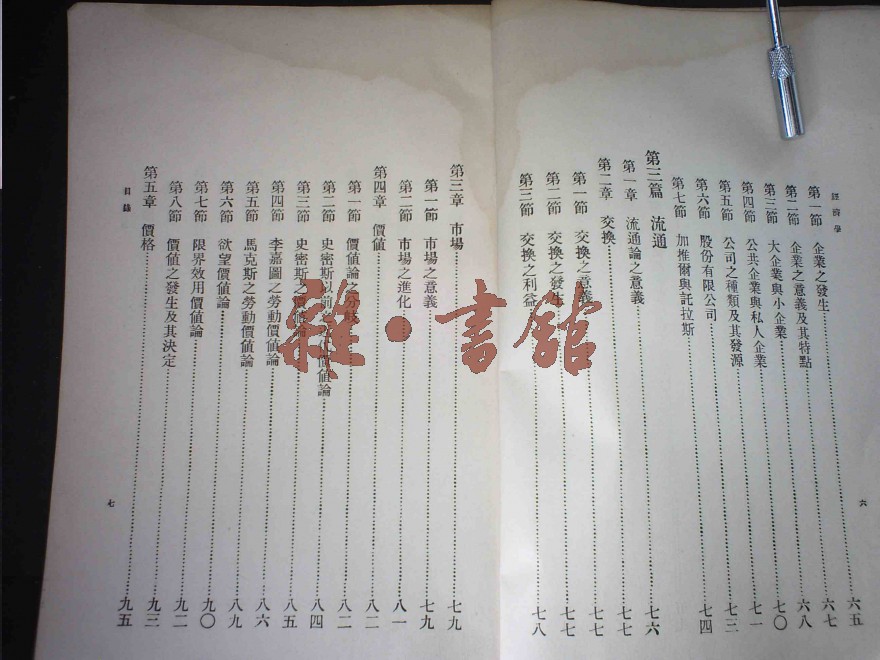 經濟學
第一節 企業之發生……六五
第二節 企業之意義及其特點……六七
第三節 大企業與小企業……六八
第四節 公共企業與私人企業……七〇
第五節 公司之種類及其發源……七一
第六節 股份有限公司……七三
第七節 加推爾與託拉斯……七四
第三篇 流通
第一章 流通論之意義……七六
第二章 交換……七七
第一節 交換之意義……七七
第二節 交換之發生……七七
第三節 交換之利益……七八
六
第三章 市場……七九
第一節 市場之意義……七九
第二節 市場之進化……八一
第四章 價值……八二
第一節 價值論之分歧……八二
第二節 史密斯以前之價值論……八四
第三節 史密斯之價值論……八五
第四節 李嘉圖之勞動價值論……八六
第五節 馬克斯之勞動價值論……八九
第六節 欲望價值論……九〇
第七節 限界效用價值論……九二
第八節 價值之發生及其決定……九三
第五章 價格……九五
目錄
七
雜·書館